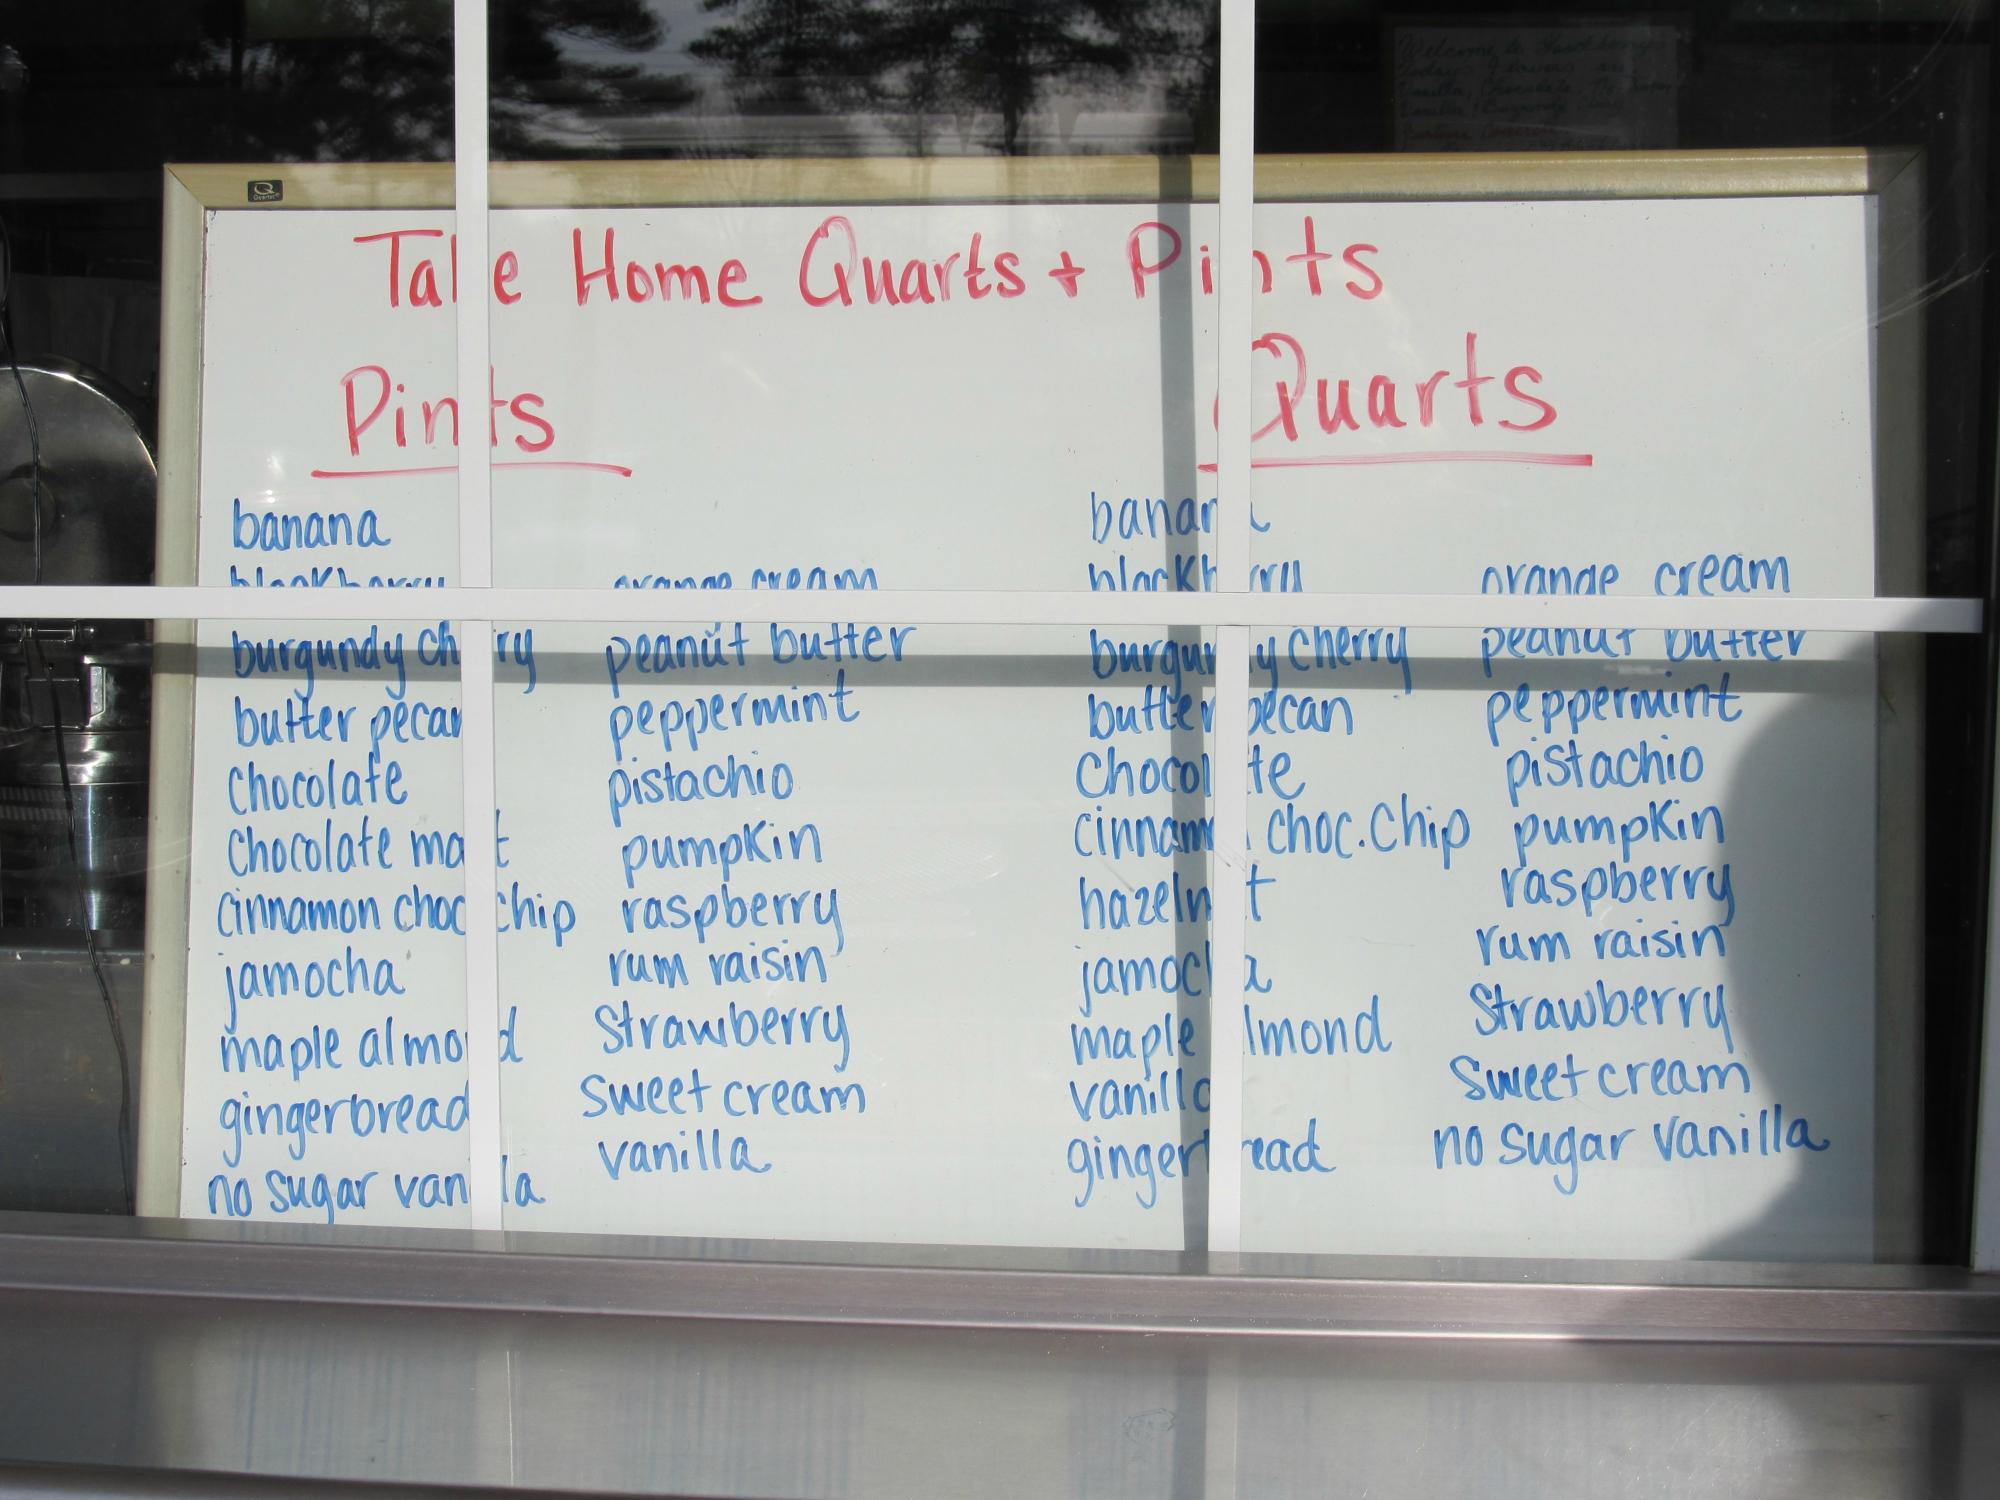 Quartet
Welcome to
Take Home Quarts + Pints
Pints
banana
blackberry
burgundy cherry
butter pecan
chocolate
chocolate malt
cinnamon choc chip
jamocha
maple almond
gingerbread
no sugar vanilla
orange cream
peanut butter
peppermint
pistachio
pumpkin
raspberry
rum raisin
strawberry
sweet cream
vanilla
Quarts
banana
blackberry
burgundy cherry
butter pecan
chocolate
cinnamon choc. chip
hazelnut
jamocha
maple almond
vanilla
gingerbread
orange cream
peanut butter
peppermint
pistachio
pumpkin
raspberry
rum raisin
strawberry
sweet cream
no sugar vanilla